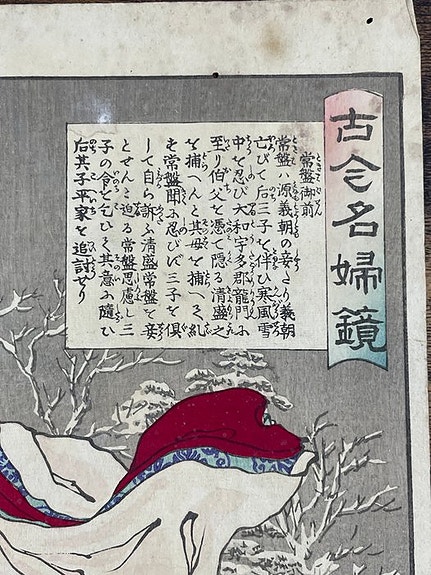 古今名婦鏡
常盤御前
常盤ハ源義朝の妾たり義朝
亡びて后三子を伴ひ寒風雪
中を忍び大和宇多郡龍門に
至り伯父を憑て隠る清盛之
を捕へんと其母を捕へき糺
を常盤聞に忍びず三子を倶
して自ら訴ふ清盛常盤を妾
とせんと迫る常盤思慮し三
子の命を乞ひて其意に随ひ
后其子平家を追討せり